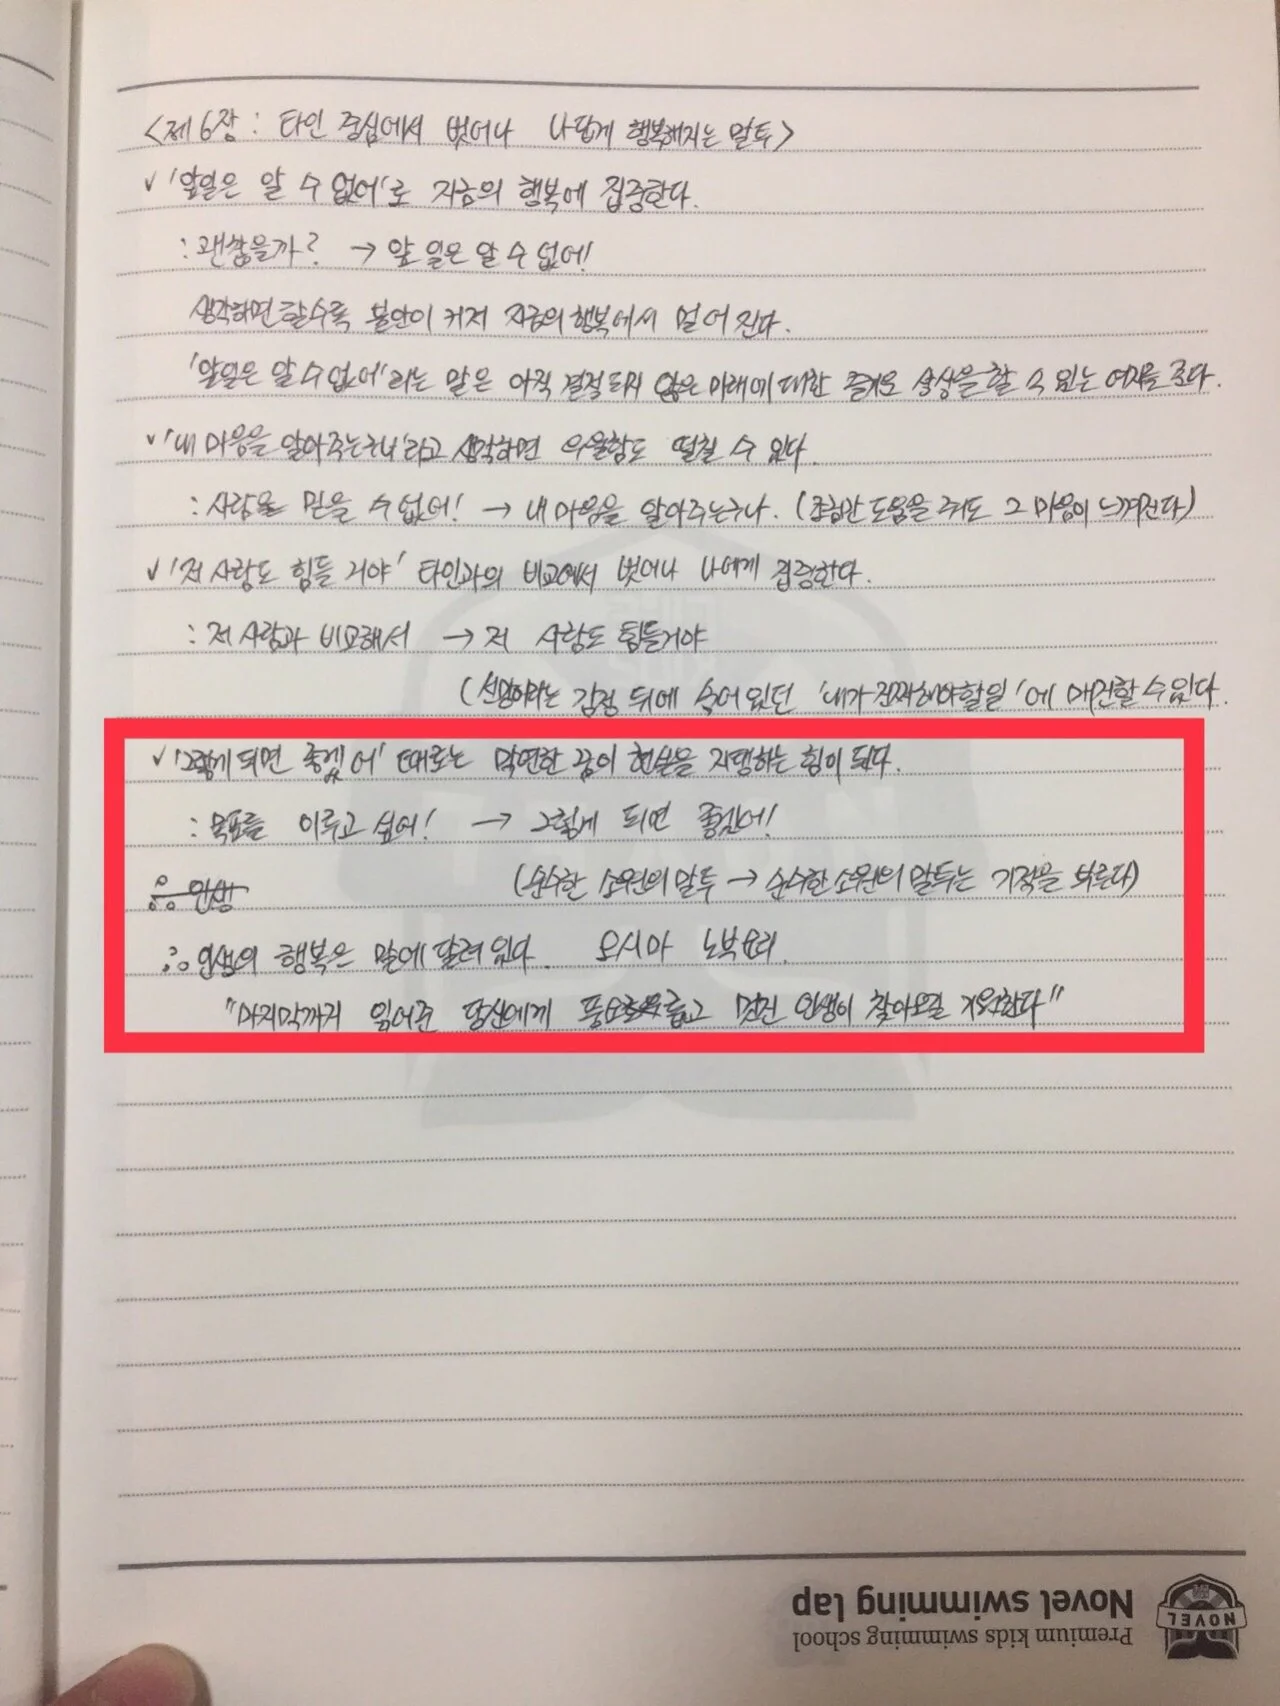 <제 6장 : 타인 중심에서 벗어나 나답게 행복해지는 말투>
✓ '앞일은 알 수 없어'로 지금의 행복에 집중한다.
: 괜찮을까? → 앞 일은 알 수 없어!
생각하면 할수록 불안이 커져 지금의 행복에서 멀어 진다.
'앞일은 알 수 없어'라는 말은 아직 결정되지 않은 미래에 대한 즐거운 상상을 할 수 있는 여지를 준다.
✓ '내 마음을 알아주는구나'라고 생각하면 우울함도 떨칠 수 있다.
: 사람을 믿을 수 없어! → 내 마음을 알아주는구나. (조금만 도움을 줘도 그 마음이 느껴진다)
✓ '저 사람도 힘들 거야' 타인과의 비교에서 벗어나 나에게 집중한다.
: 저 사람과 비교해서 → 저 사람도 힘들거야
(선망이라는 감정 뒤에 숨어 있던 '내가 진짜해야할일'에 매진할 수 있다.
✓ '그렇게 되면 좋겠어' 때로는 막연한 꿈이 현실을 지탱하는 힘이 된다.
: 목표를 이루고 싶어! → 그렇게 되면 좋겠어!
인생 (순수한 소원의 말투 → 순수한 소원의 말투는 기적을 부른다)
∴ 인생의 행복은 말에 달려 있다. 오시마 노부요리.
"마지막까지 읽어준 당신에게 풍요롭고 멋진 인생이 찾아오길 기원한다"
Premium kids swimming school
Novel swimming lap
NOVEL